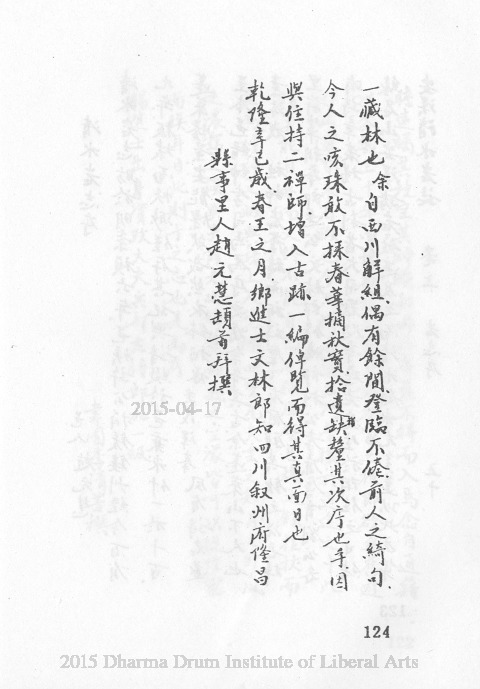 一藏林也余自西川解組偶有餘閒登臨不倦前人之綺句
今人之咳珠敢不採春華摘秋實拾遺缺釐其次序也乎因
與住持二禪師增入古跡一編俾覽而得其真面目也
乾隆辛巳歲春王之月鄉進士文林郎知四川叙州府隆昌
縣事里人趙元慧頓首拜撰
2015-04-17
124
2015 Dharma Drum Institute of Liberal Arts